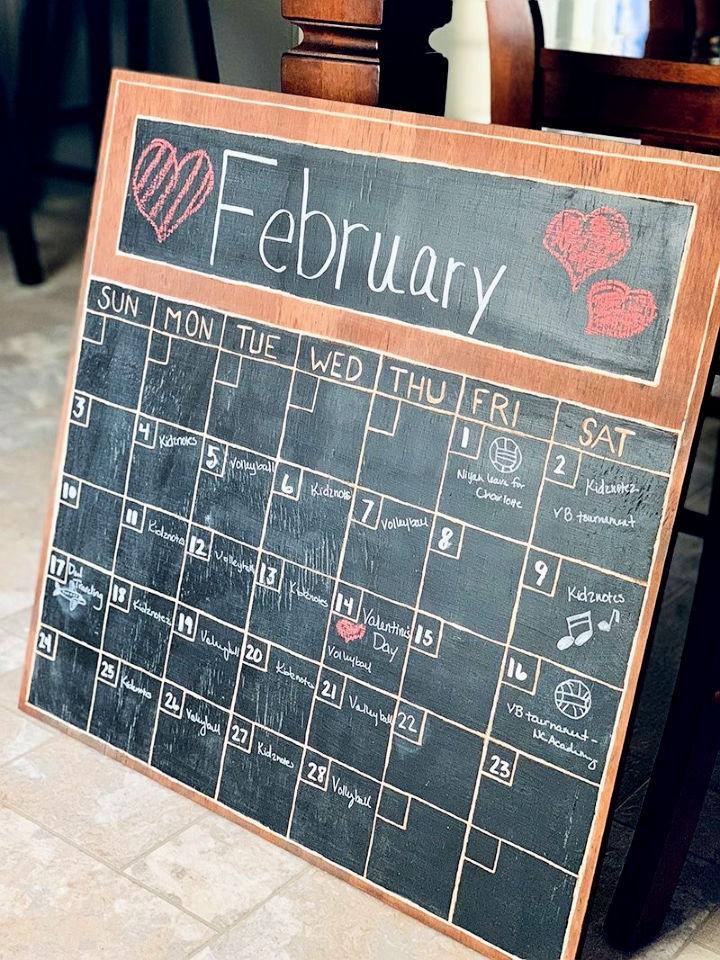 February
SUN MON TUE WED THU FRI SAT
1
Niyah leave for
Charlotte
2 Kidznotez
VB tournament
3
4 Kidznotes
5 Volleyball
6 Kidznotes
7 Volleyball
8
9 Kidznotes
10
11 Kidznotes
12 Volleyball
13 Kidznotes
14 Valentine's
Day
Volleyball
15
16
VB tournament -
NC Academy
17 Dad
Traveling
18 Kidznotez
19 Volleyball
20 Kidznotes
21 Volleyball
22
23
24
25 Kidznotes
26 Volleyball
27 Kidznotes
28 Volleyball